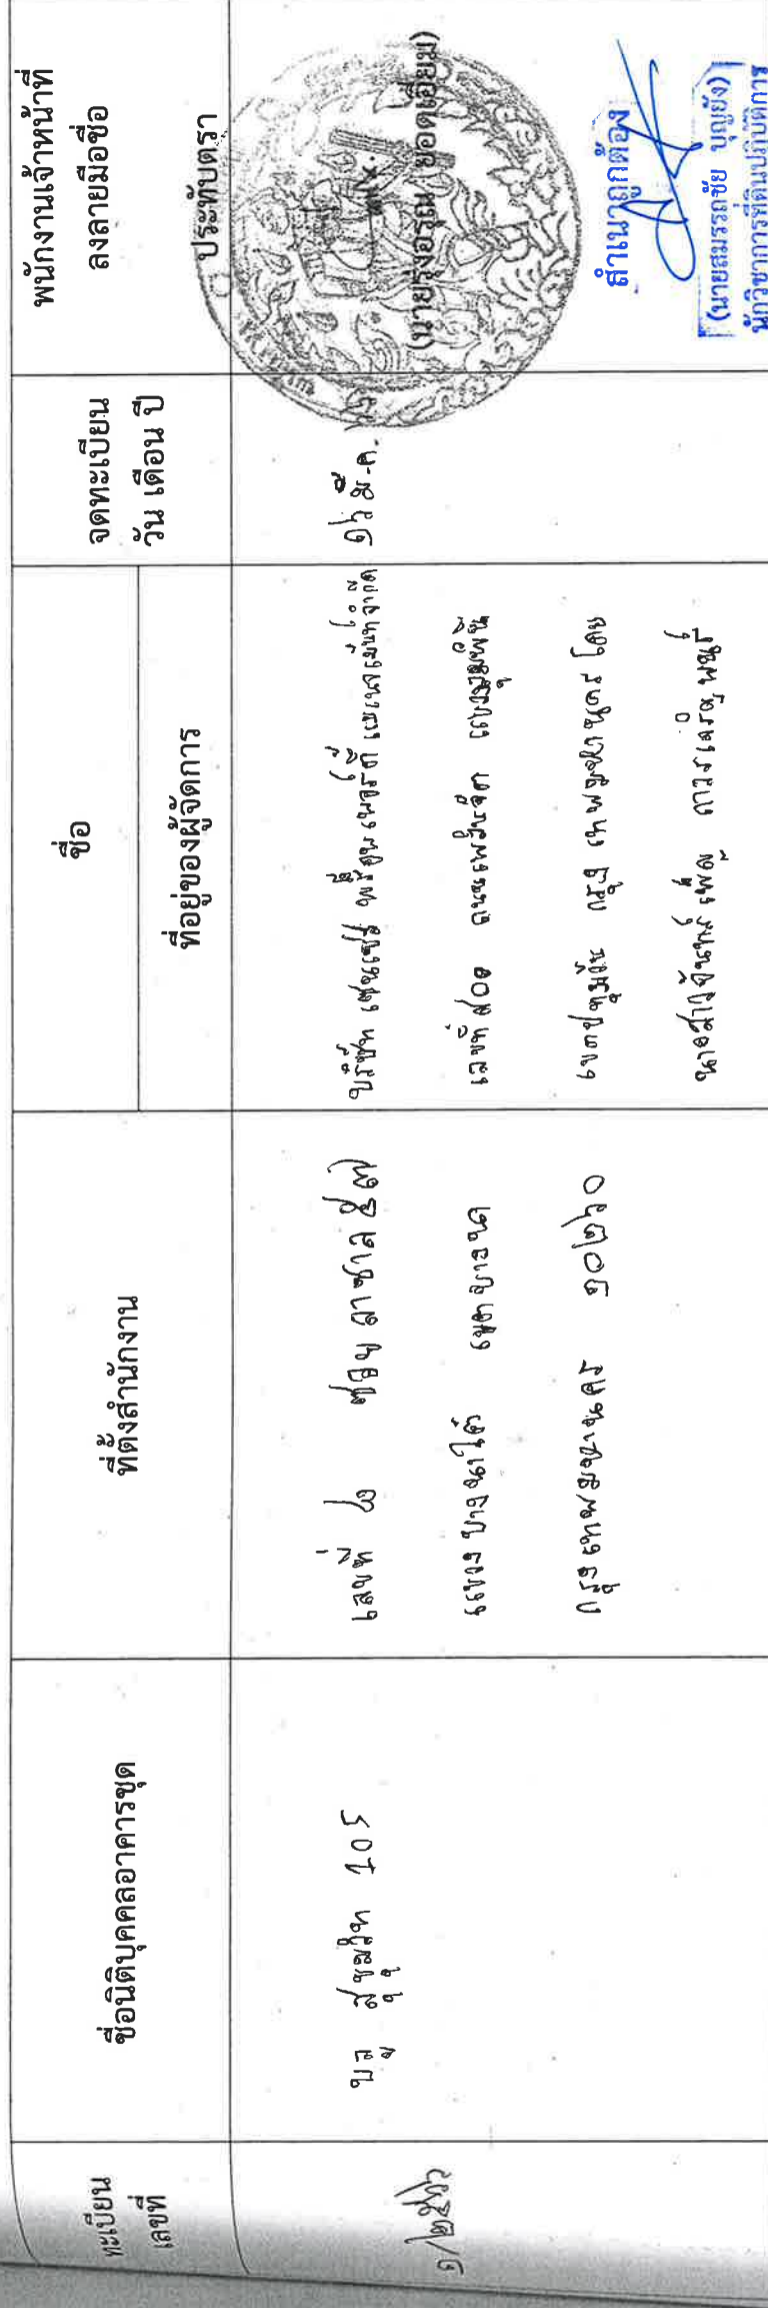 ทะเบียน
เลขที่
ชื่อนิติบุคคลอาคารชุด
ที่ตั้งสำนักงาน
ชื่อ
ที่อยู่ของผู้จัดการ
จดทะเบียน
วัน เดือน ปี
พนักงานเจ้าหน้าที่
ลงลายมือชื่อ
ประทับตรา
๑/๒๕๖๖
บลู สุขุมวิท 105
เลขที่ ๖ ซอยลาซาล ๕๗
แขวงบางนาใต้ เขตบางนา
กรุงเทพมหานคร ๑๐๒๖๐
บริษัท เซนเชส พร็อพเพอร์ตี้ แมเนจเม้นท์ จำกัด
เลขที่ ๙๐๐ ถนนเพลินจิต แขวงลุมพินี
เขตปทุมวัน กรุงเทพมหานคร โดย
นางสาวจันทร์เพ็ญ
๑๖ มี.ค.
(นายรุ่งอรุณ ยอดเอี่ยม)
สำเนาถูกต้อง
(นายสมรรถชัย บุญยัง)
นักวิชาการที่ดินปฏิบัติการ